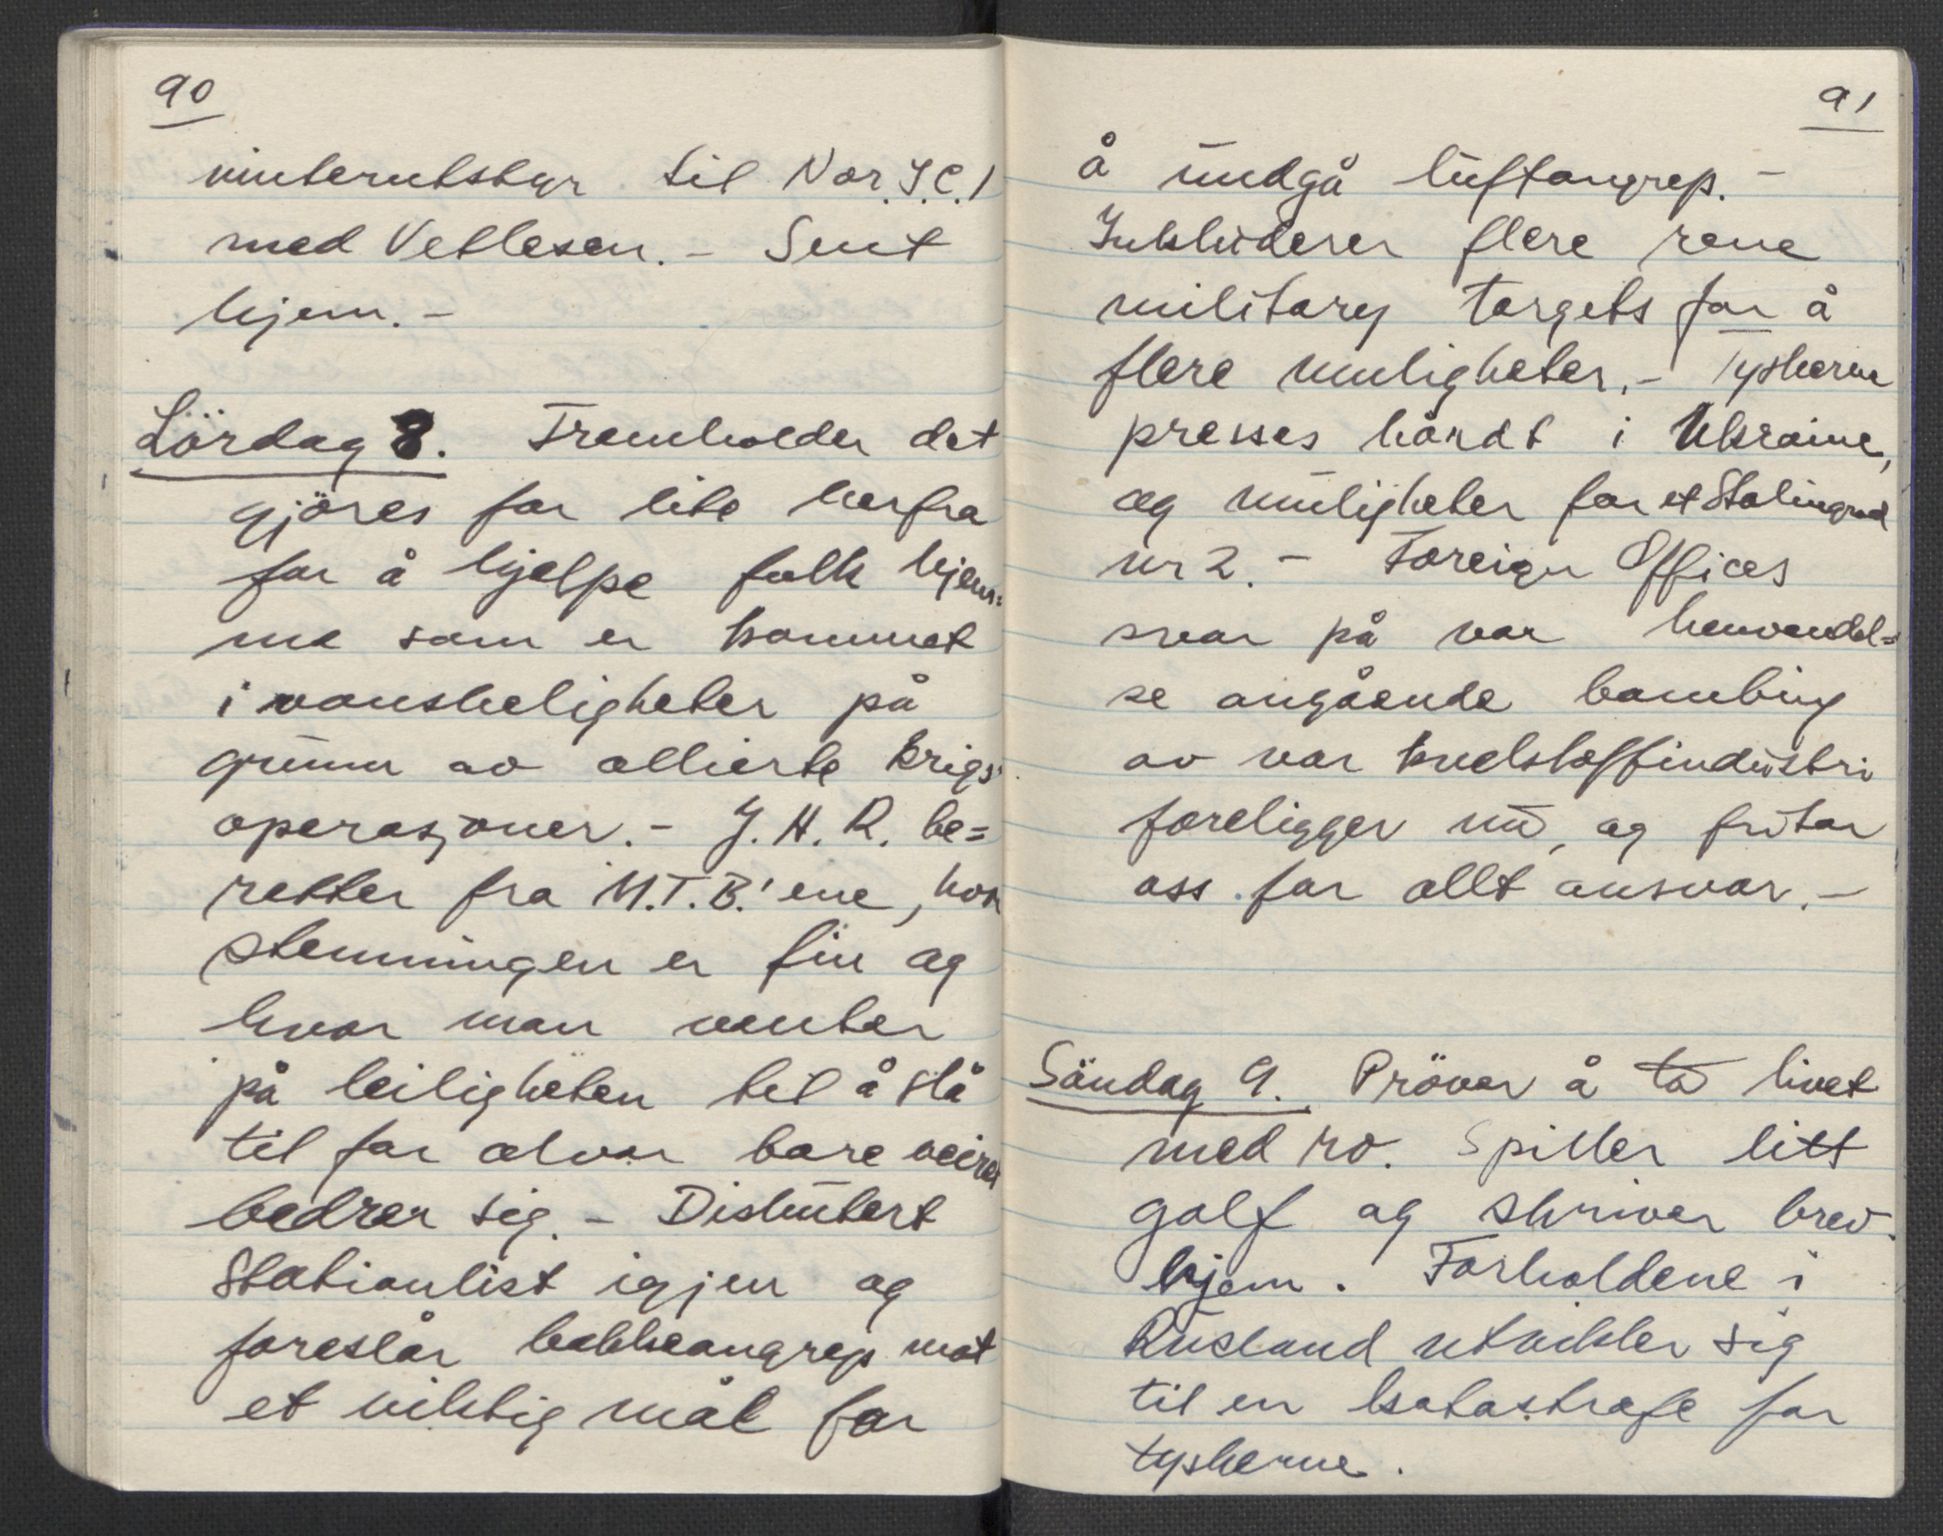 90
vinterutstyr til Nor.I.C.1
med Vetlesen. – Sent
hjem. –
Lördag 8. Fremholder det
gjöres for lite herfra
for å hjelpe folk hjem=
me som er kommet
i vanskeligheter på
grunn av allierte krigs
operasjoner. – J.H.R. be=
retter fra M.T.B.'ene, hvor
stemningen er fin og
hvor man venter
på leiligheten til å slå
til for alvor bare veiret
bedrer sig. – Diskutert
Stationlist igjen og
foreslår bakkeangrep mot
et viktig mål for
91
å undgå luftangrep. –
Inkluderer flere rene
military targets for å
flere muligheter. – Tyskerne
presses hårdt i Ukraine,
og muligheter for et Stalingrad
nr 2. – Foreign Offices
svar på vår henvendel=
se angående bombing
av vår kvelstoffindustri
foreligger nu, og fritar
oss for allt ansvar. –
Söndag 9. Pröver å ta livet
med ro. Spiller litt
golf og skriver brev
hjem. Forholdene i
Russland utvikler sig
til en katastrofe for
tyskerne.